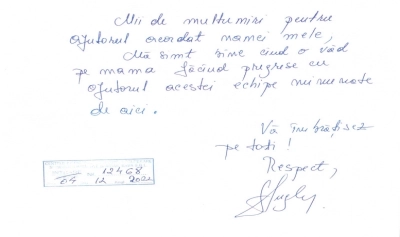 Mii de mulțumiri pentru
ajutorul acordat mamei mele,
Mă simt bine când o văd
pe mama făcând progrese cu
ajutorul acestei echipe minunate
de aici.
Vă îmbrățișez
pe toți!
Respect,
12468
04 12 2021